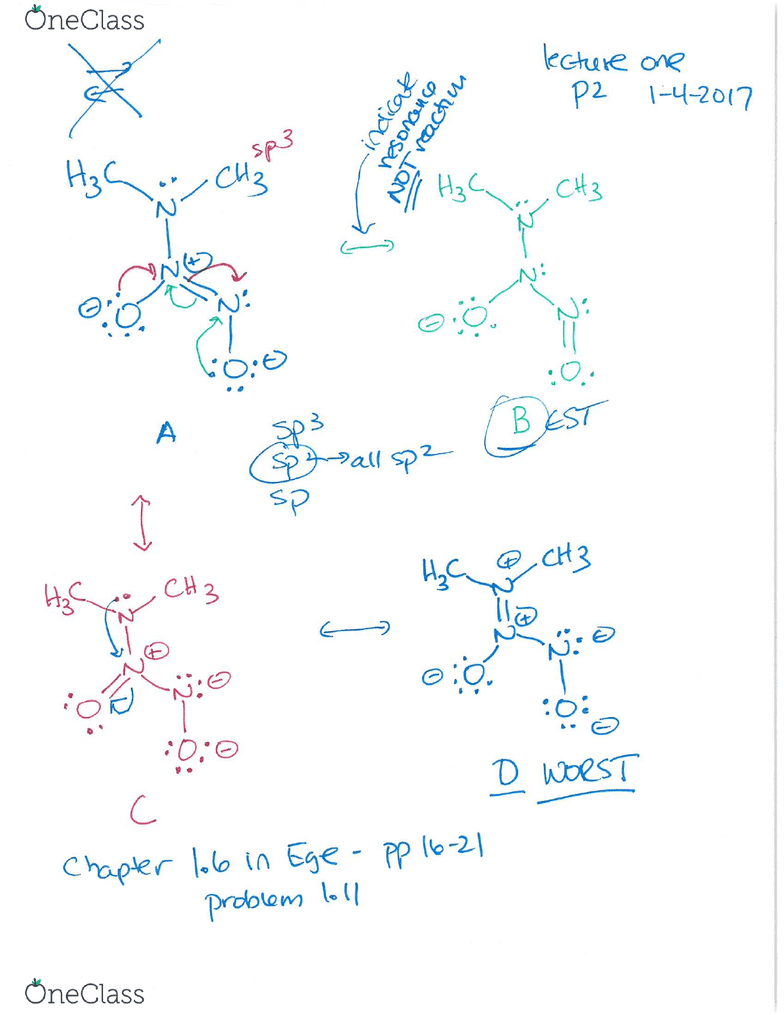 OneClass
lecture one
P2 1-4-2017
indicate
resonance
NOT reaction
sp3
H3C CH3
N
N +
- O N
O -
A
H3C CH3
N
N
- O N
O
B EST
sp3
sp2 → all sp2
sp
H3C CH3
N
N +
O N -
O -
C
H3C + CH3
N
N +
- O N -
O -
D WORST
Chapter 1.6 in Ege - pp 16-21
problem 1.11
OneClass